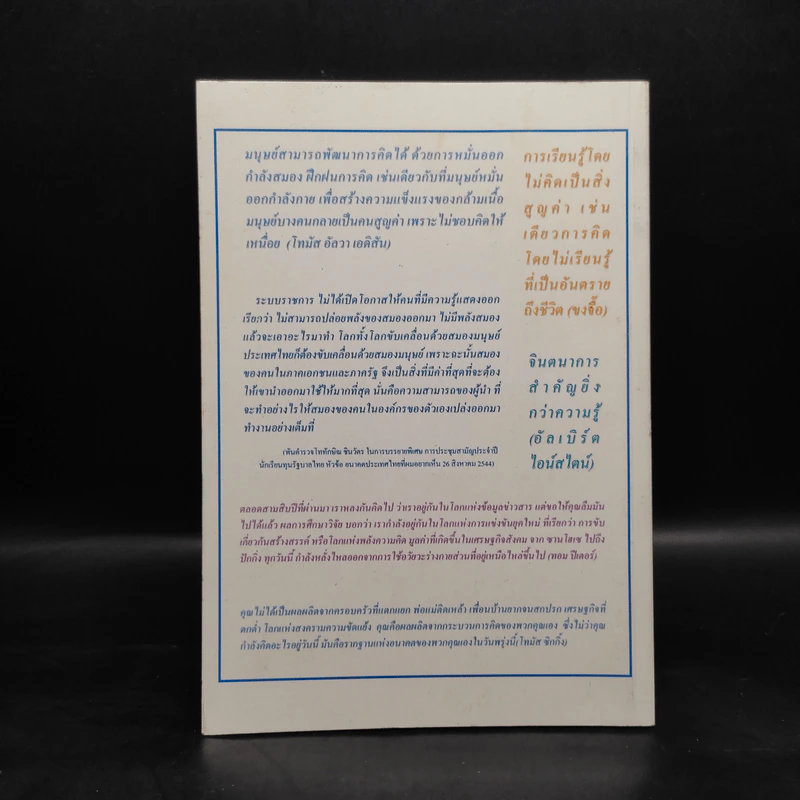 มนุษย์สามารถพัฒนาการคิดได้ ด้วยการหมั่นออก
กำลังสมอง ฝึกฝนการคิด เช่นเดียวกับที่มนุษย์หมั่น
ออกกำลังกาย เพื่อสร้างความแข็งแรงของกล้ามเนื้อ
มนุษย์บางคนกลายเป็นคนสูญค่า เพราะไม่ชอบคิดให้
เหนื่อย (โทมัส อัลวา เอดิสัน)
ระบบราชการ ไม่ได้เปิดโอกาสให้คนที่มีความรู้แสดงออก
เรียกว่า ไม่สามารถปล่อยพลังของสมองออกมา ไม่มีพลังสมอง
แล้วจะเอาอะไรมาทำ โลกทั้งโลกขับเคลื่อนด้วยสมองมนุษย์
ประเทศไทยก็ต้องขับเคลื่อนด้วยสมองมนุษย์ เพราะฉะนั้นสมอง
ของคนในภาคเอกชนและภาครัฐ จึงเป็นสิ่งที่มีค่าที่สุดที่จะต้อง
ให้เขานำออกมาใช้ให้มากที่สุด นั่นคือความสามารถของผู้นำ ที่
จะทำอย่างไรให้สมองของคนในองค์กรของตัวเองเปล่งออกมา
ทำงานอย่างเต็มที่
(พันตำรวจโททักษิณ ชินวัตร ในการบรรยายพิเศษ การประชุมสามัญประจำปี
นักเรียนทุนรัฐบาลไทย หัวข้อ อนาคตประเทศไทยที่ผมอยากเห็น 26 สิงหาคม 2544)
การเรียนรู้โดย
ไม่คิดเป็นสิ่ง
สูญค่า เช่น
เดียวการคิด
โดยไม่เรียนรู้
ที่เป็นอันตราย
ถึงชีวิต (ขงจื้อ)
จินตนาการ
สำคัญยิ่ง
กว่าความรู้
(อัลเบิร์ต
ไอน์สไตน์)
ตลอดสามสิบปีที่ผ่านมาเราหลงกันคิดไป ว่าเราอยู่กันในโลกแห่งข้อมูลข่าวสาร แต่ขอให้คุณลืมมัน
ไปได้แล้ว ผลการศึกษาวิจัย บอกว่า เรากำลังอยู่กันในโลกแห่งการแข่งขันยุคใหม่ ที่เรียกว่า การขับ
เคี่ยวกันสร้างสรรค์ หรือโลกแห่งพลังความคิด มูลค่าที่เกิดขึ้นในเศรษฐกิจสังคม จาก ซานโฮเซ ไปถึง
ปักกิ่ง ทุกวันนี้ กำลังหลั่งไหลออกจากการใช้อวัยวะร่างกายส่วนที่อยู่เหนือไหล่ขึ้นไป (ทอม ปีเตอร์)
คุณไม่ได้เป็นผลผลิตจากครอบครัวที่แตกแยก พ่อแม่ติดเหล้า เพื่อนบ้านยากจนสกปรก เศรษฐกิจที่
ตกต่ำ โลกแห่งสงครามความขัดแย้ง คุณคือผลผลิตจากกระบวนการคิดของพวกคุณเอง ซึ่งไม่ว่าคุณ
กำลังคิดอะไรอยู่วันนี้ มันคือรากฐานแห่งอนาคตของพวกคุณเองในวันพรุ่งนี้(โทมัส ซิกกิ้ง)